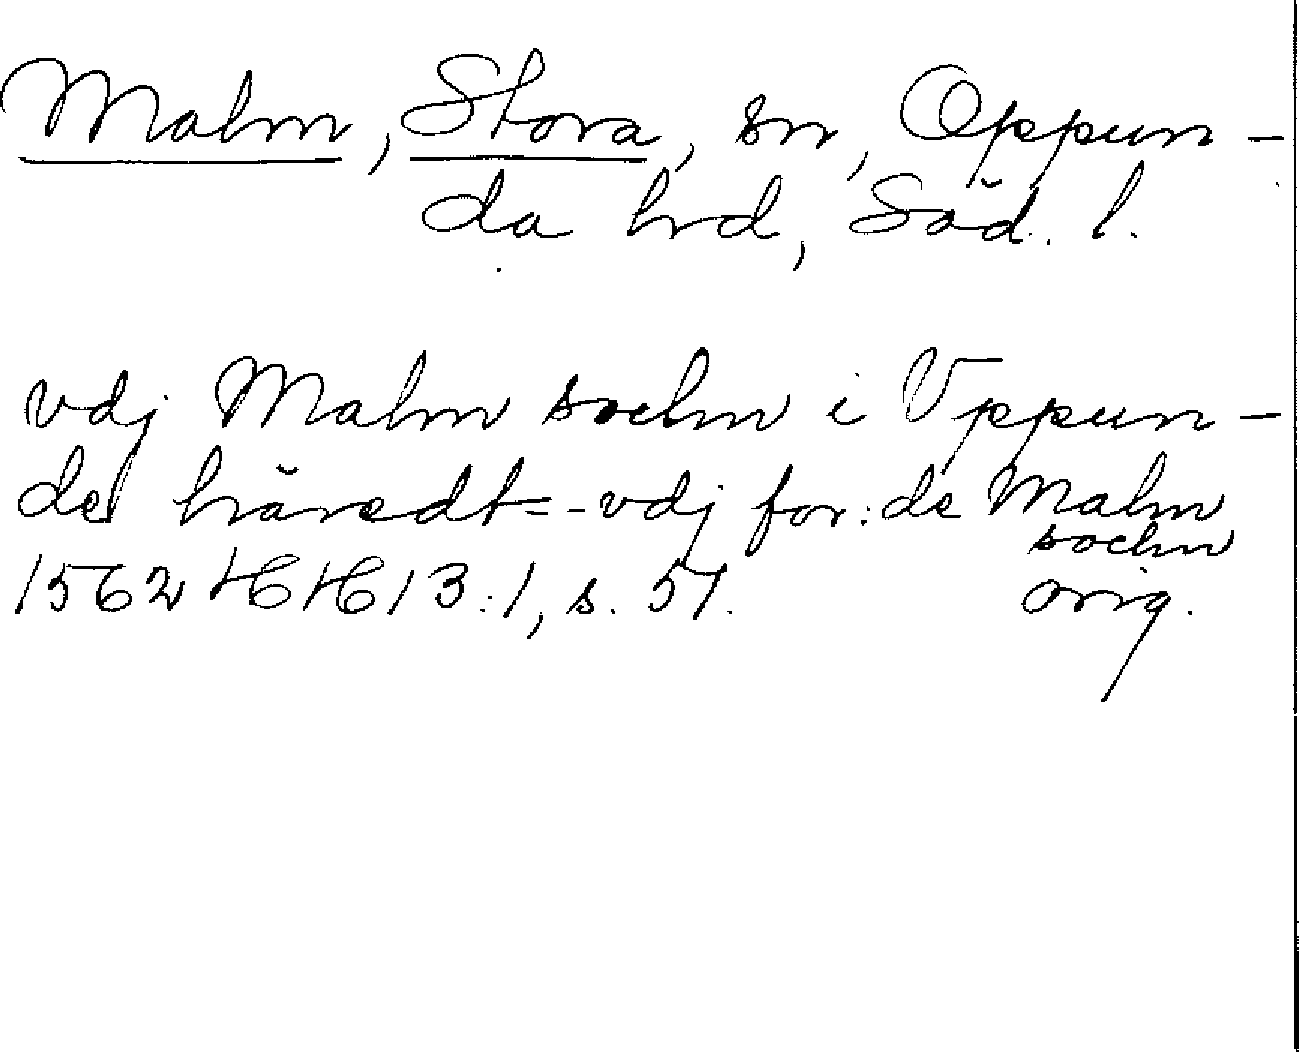 Malm, Stora, sn, Oppun-
da hrd, Söd. l.
vdj Malm sochn i Vppun-
de häredt = - vdj for: de Malm
sochn
1562 HH 13:1, s. 57. orig.